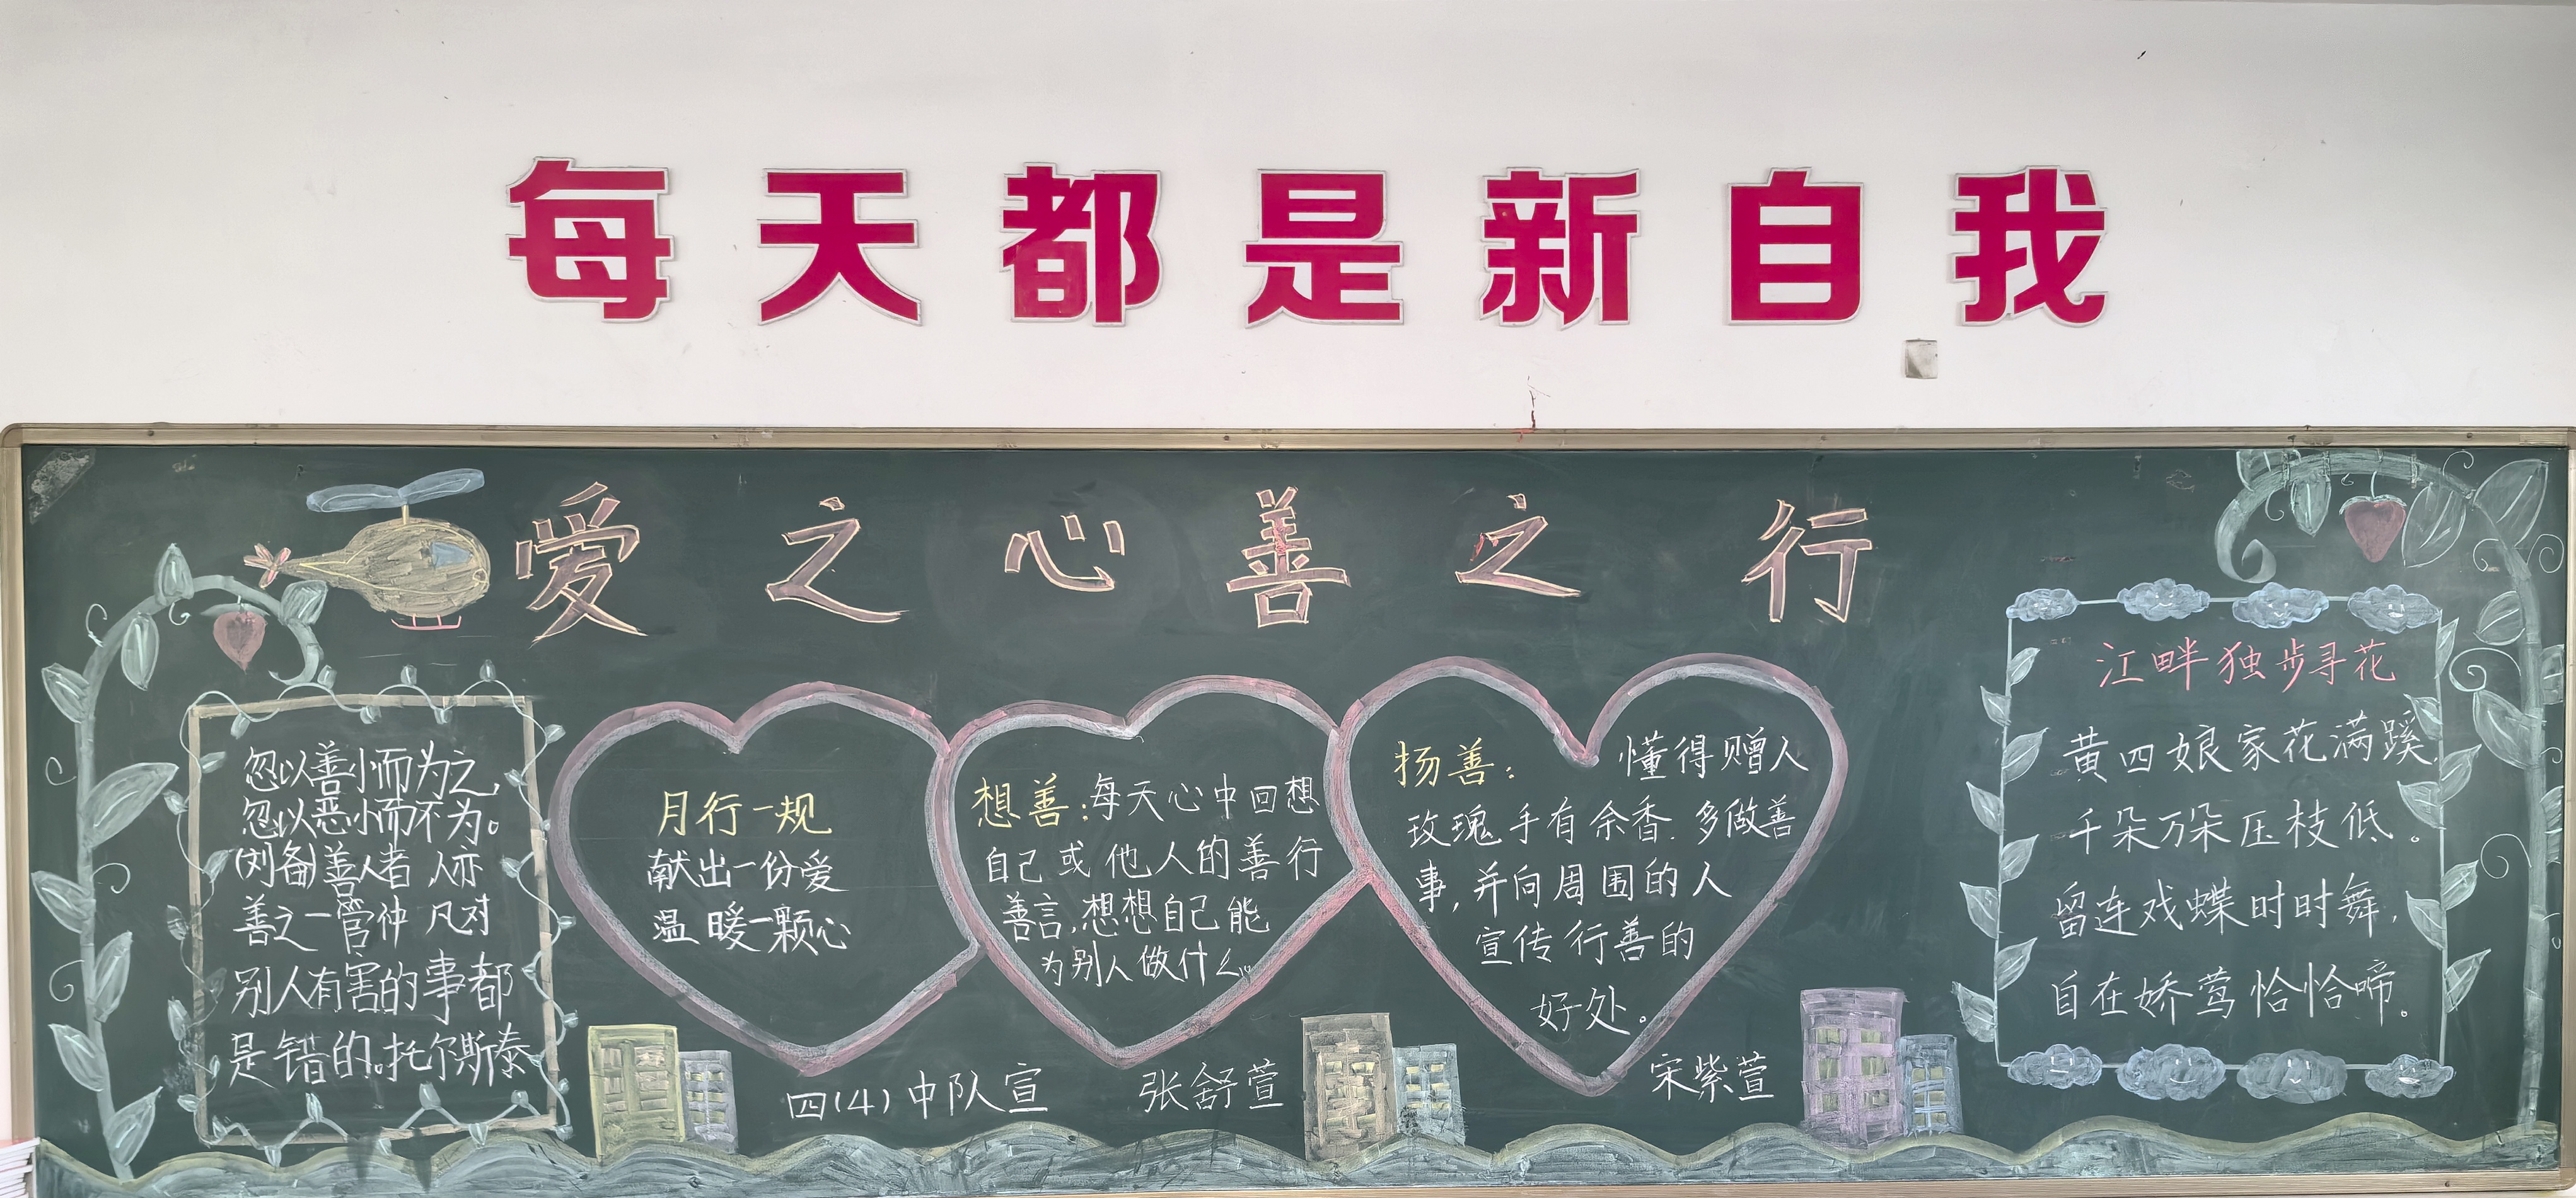 每天都是新自我
爱之心善之行
忽以善小而为之,
忽以恶小而不为。
(刘备)善人者 人亦
善之一管仲 凡对
别人有害的事都
是错的。托尔斯泰
月行一规
献出一份爱
温暖一颗心
想善:每天心中回想
自己或他人的善行
善言,想想自己能
为别人做什么
扬善: 懂得赠人
玫瑰手有余香.多做善
事,并向周围的人
宣传行善的
好处。
江畔独步寻花
黄四娘家花满蹊,
千朵万朵压枝低。
留连戏蝶时时舞,
自在娇莺恰恰啼。
四(4)中队宣 张舒萱 宋紫萱